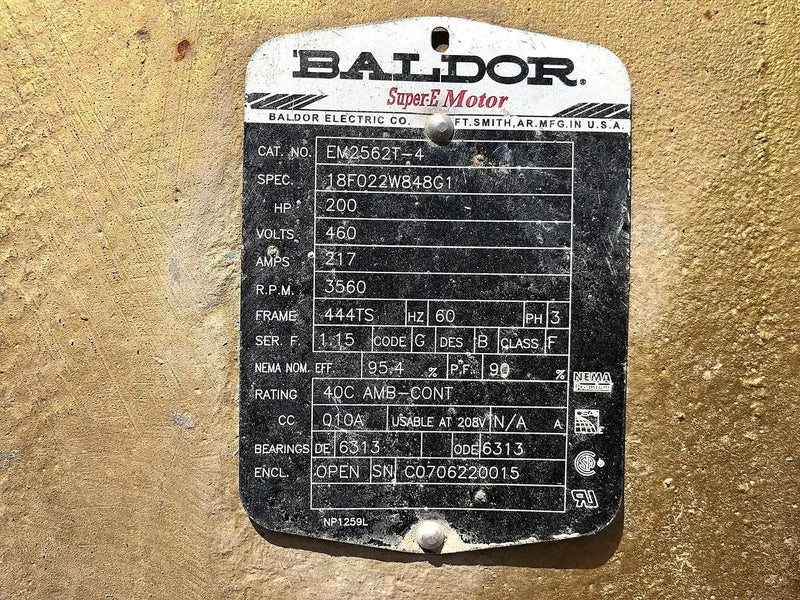 BALDOR®
Super-E Motor
BALDOR ELECTRIC CO. FT.SMITH,AR.MFG.IN U.S.A.
CAT. NO. EM2562T-4
SPEC. 18F022W848G1
HP 200
VOLTS 460
AMPS 217
R.P.M. 3560
FRAME 444TS HZ 60 PH 3
SER. F. 1.15 CODE G DES B CLASS F
NEMA NOM. EFF. 95.4 % P.F. 90 %
NEMA
Premium
RATING 40C AMB-CONT
CC 010A USABLE AT 208V N/A A
BEARINGS DE 6313 ODE 6313
ENCL. OPEN SN C0706220015
NP1259L